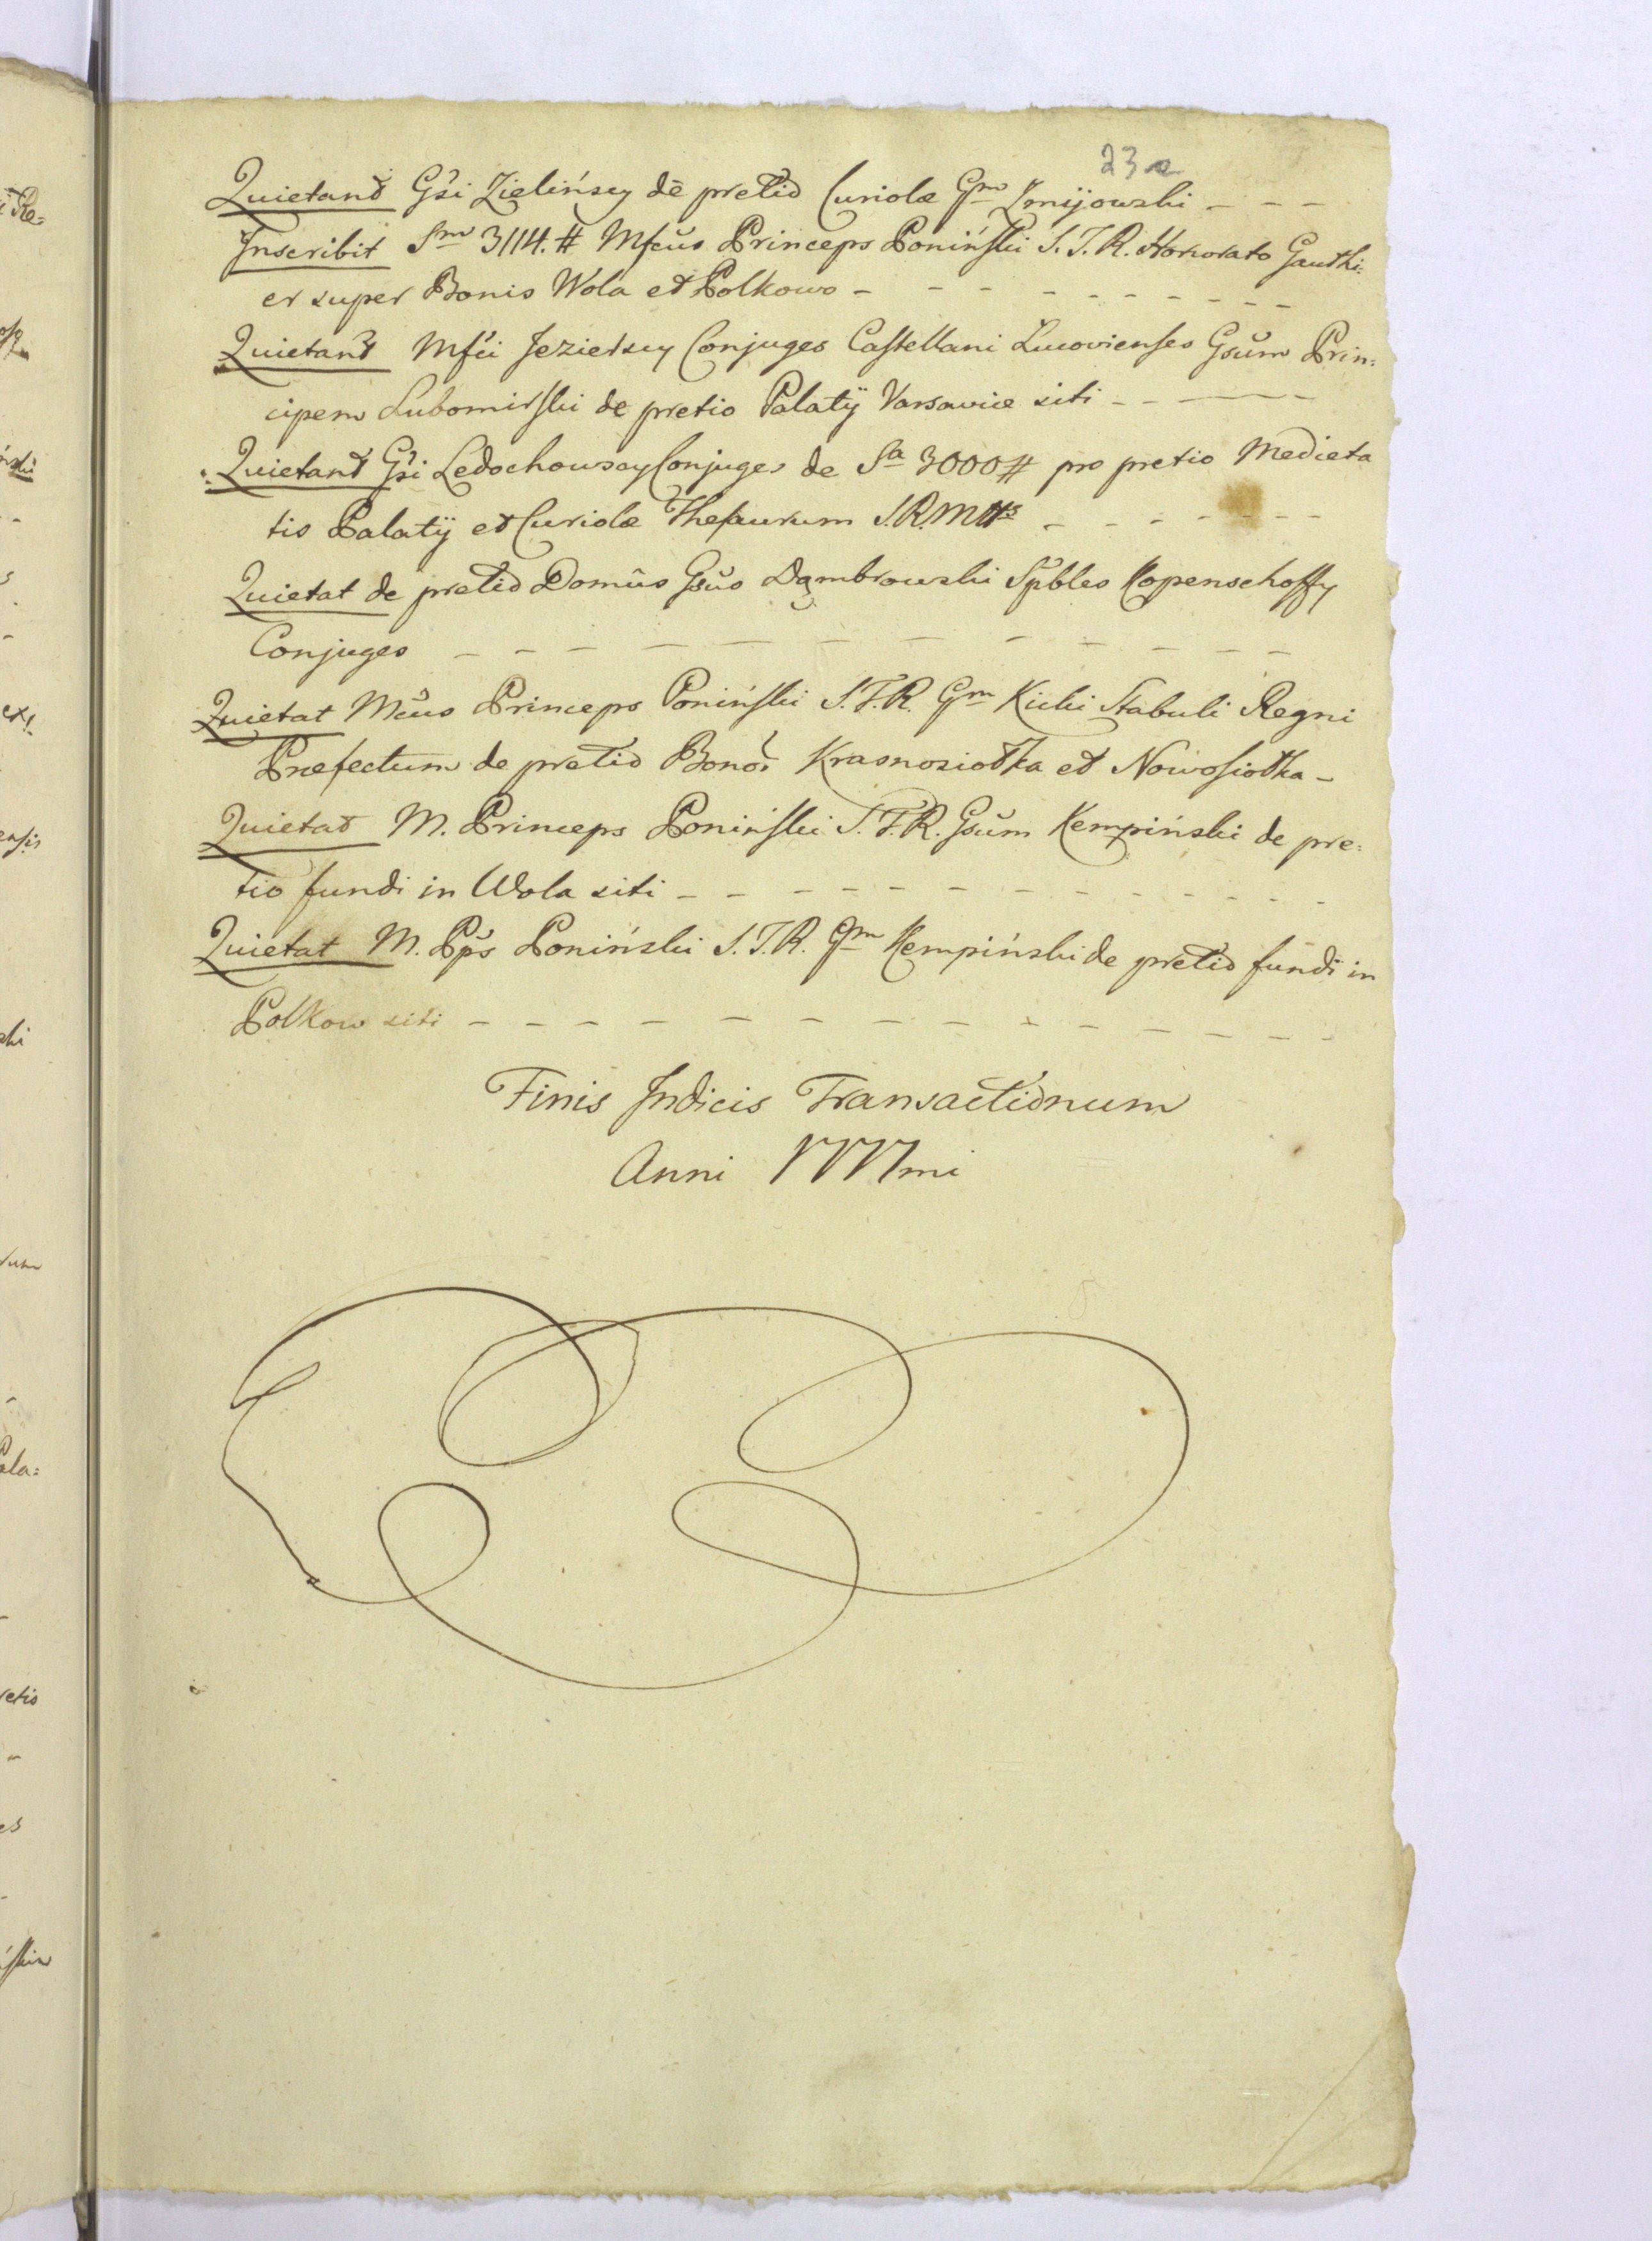 23
Quietant Gsi Zielińscy de pretio Curiolæ Gm Żmijowski - - -
Inscribit Sm 3114. # Mfcus Princeps Poniński S. T. R. Honorato Gauthi:
er super Bonis Wola et Polkowo - - - - - - - - - -
Quietant Mfci Jezierscy Conjuges Castellani Lucovienses Gsum Prin:
cipem Lubomirski de pretio Palatÿ Varsaviæ siti - - - - -
Quietant Gsi Ledochowscy Conjuges de Sa 3000 # pro pretio Medieta
tis Palatÿ et Curiolæ Thesaurum S. R. Mttis - - - - - - -
Quietat de pretio Domûs Gsus Dąmbrowski Spbles Kopenschoffy
Conjuges - - - - - - - - - - - - -
Quietat Mcus Princeps Poniński S. T. R. Gm Kicki Stabuli Regni
Præfectum de pretio Bonor Krasnosiołka et Nowosiołka -
Quietat M. Princeps Poniński S. T. R. Gsum Kempiński de pre:
tio fundi in Wola siti - - - - - - - - - - - -
Quietat M. Pps Poniński S. T. R. Gm Kempiński de pretio fundi in
Polkow siti - - - - - - - - - - - - - -
Finis Indicis Transactionum
Anni 1777mi